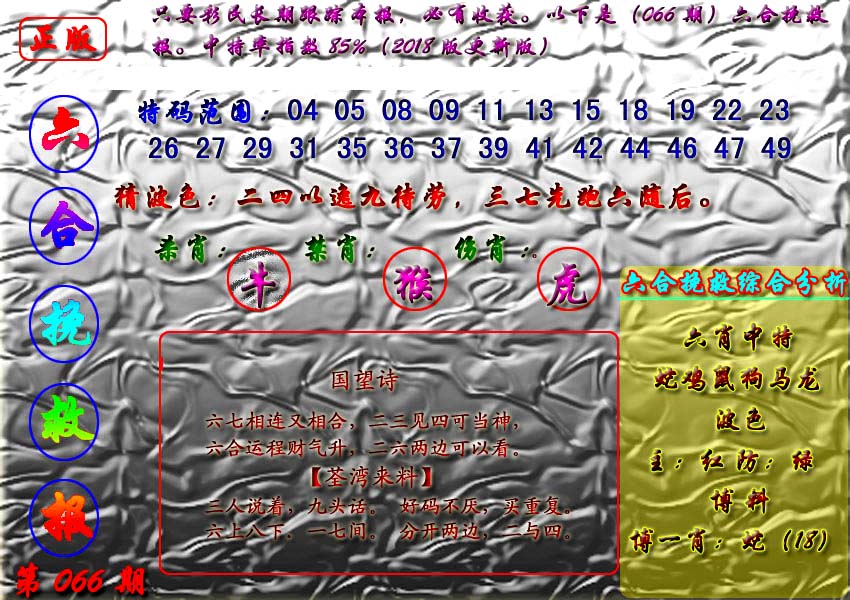 正版
只要彩民长期跟踪本报，必有收获。以下是（066期）六合挽救
报。中特率指数85%（2018版更新版）
六合挽救报
第066期
特码范围：04 05 08 09 11 13 15 18 19 22 23
26 27 29 31 35 36 37 39 41 42 44 46 47 49
猜波色：二四以逸九待劳，三七先跑六随后。
杀肖：牛 禁肖：猴 伤肖：虎
国望诗
六七相连又相合，二三见四可当神，
六合运程财气升，二六两边可以看。
【荃湾来料】
三人说着，九头话。 好码不厌，买重复。
六上八下。一七间。 分开两边，二与四。
六合挽救综合分析
六肖中特
蛇鸡鼠狗马龙
波色
主：红防：绿
博料
博一肖：蛇（18）